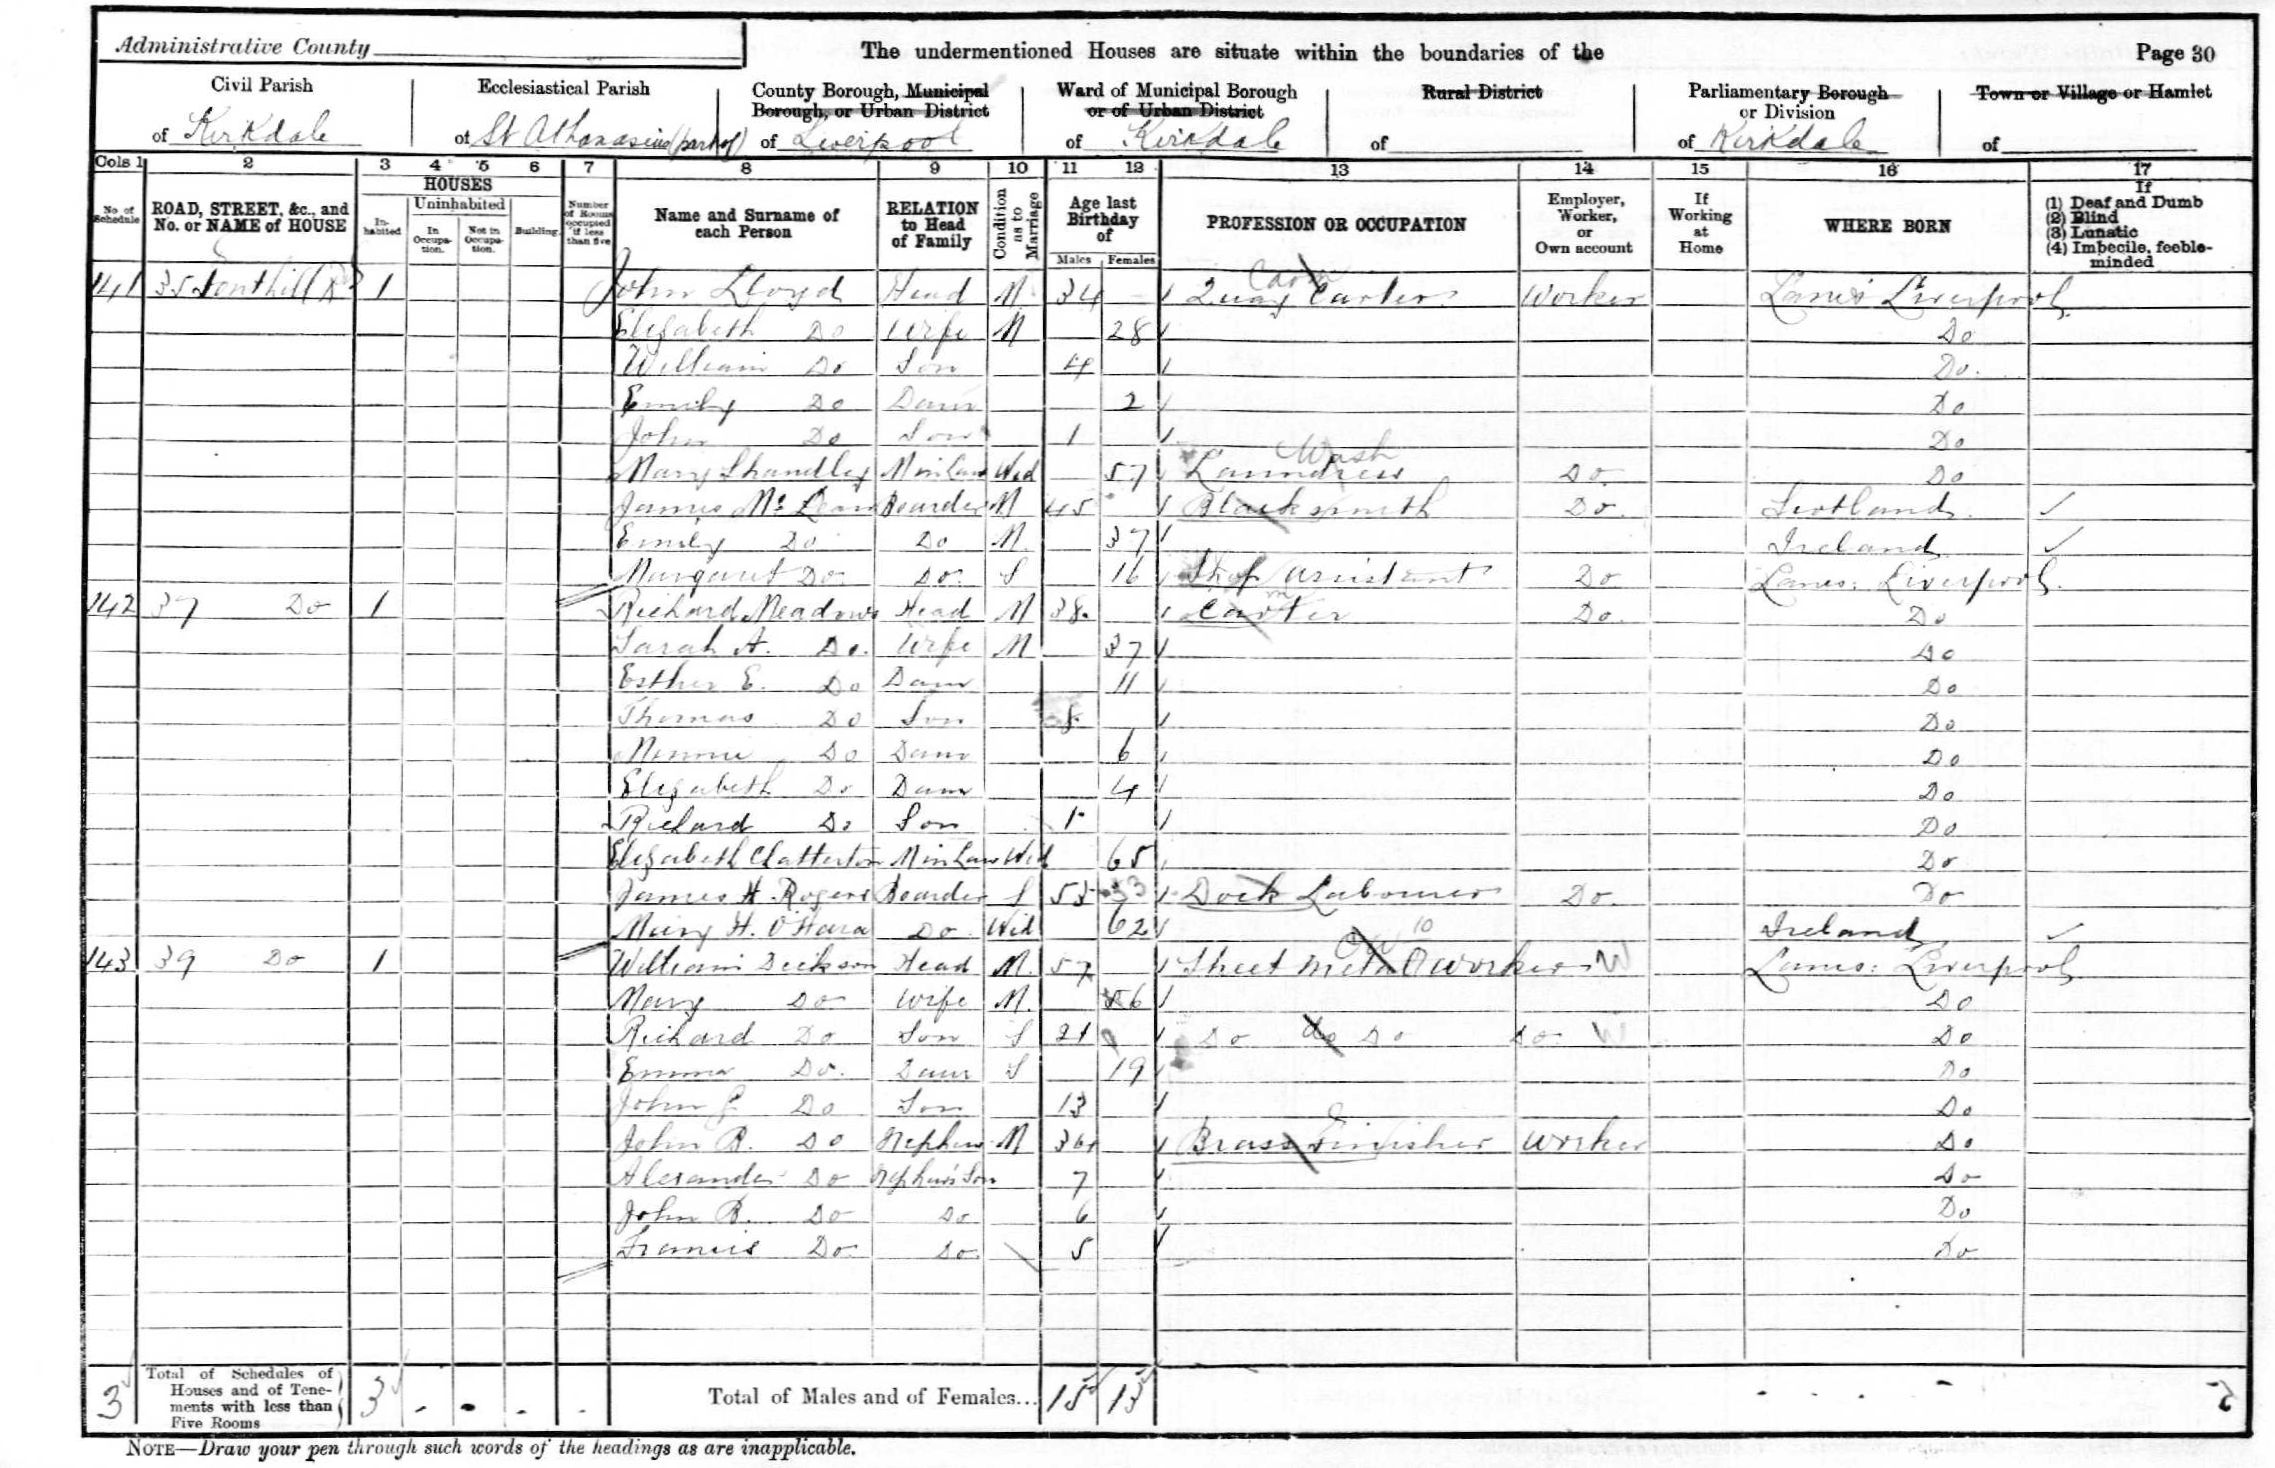 Administrative County
The undermentioned Houses are situate within the boundaries of the
Page 30
Civil Parish
of Kirkdale
Ecclesiastical Parish
of St Athanasius (part of)
County Borough, Municipal
Borough, or Urban District
of Liverpool
Ward of Municipal Borough
or of Urban District
of Kirkdale
Rural District
of
Parliamentary Borough
or Division
of Kirkdale
Town or Village or Hamlet
of
Cols 1 2 3 4 5 6 7 8 9 10 11 12 13 14 15 16 17
No. of Schedule
ROAD, STREET, &c., and No. or NAME of HOUSE
HOUSES
In-habited
Uninhabited
In Occupa-tion.
Not in Occupa-tion.
Building.
Number of Rooms occupied if less than five
Name and Surname of each Person
RELATION to Head of Family
Condition as to Marriage
Age last Birthday of
Males Females
PROFESSION OR OCCUPATION
Employer, Worker, or Own account
If Working at Home
WHERE BORN
If
(1) Deaf and Dumb
(2) Blind
(3) Lunatic
(4) Imbecile, feeble-minded
141 35 Fonthill Rd 1 John Lloyd Head M 34 Quay Carter Worker Lancs Liverpool
Elizabeth Do Wife M 28 Do
William Do Son 4 Do.
Emily Do Daur 2 Do
John Do Son 1 Do
Wash
Mary Shandley M in Law Wid 57 Laundress Do. Do
James Mc Lean Boarder M 45 Blacksmith Do. Scotland
Emily Do Do M. 37 Ireland
Margaret Do. Do. S 16 Shop assistant Do Lancs: Liverpool.
142 37 Do 1 Richard Meadows Head M 38. Carter Do. Do
Sarah A. Do. Wife M 37 Do
Esther E. Do Daur 11 Do
Thomas Do Son 8 Do
Minnie Do Daur 6 Do
Elizabeth Do Daur 4 Do
Richard Do Son 1 Do
Elizabeth Chatterton M in Law Wid 65 Do
James H. Rogers Boarder S 53 Dock Labourer Do. Do
Mary H. O'Hara Do Wid 62 Ireland
143 39 Do 1 William Dickson Head M. 57 Sheet metal worker W Lancs: Liverpool
Mary Do Wife M. 56 Do
Richard Do Son S 21 Do do Do Do W Do
Emma Do. Daur S 19 Do
John G Do Son 13 Do
John B. Do Nephew M 36 Brass Finisher Worker Do
Alexander Do Nephew's Son 7 Do
John B. Do Do 6 Do
Francis Do Do. 5 Do
3 Total of Schedules of Houses and of Tene-ments with less than Five Rooms 3 - - - Total of Males and of Females... 15 13
NOTE—Draw your pen through such words of the headings as are inapplicable.